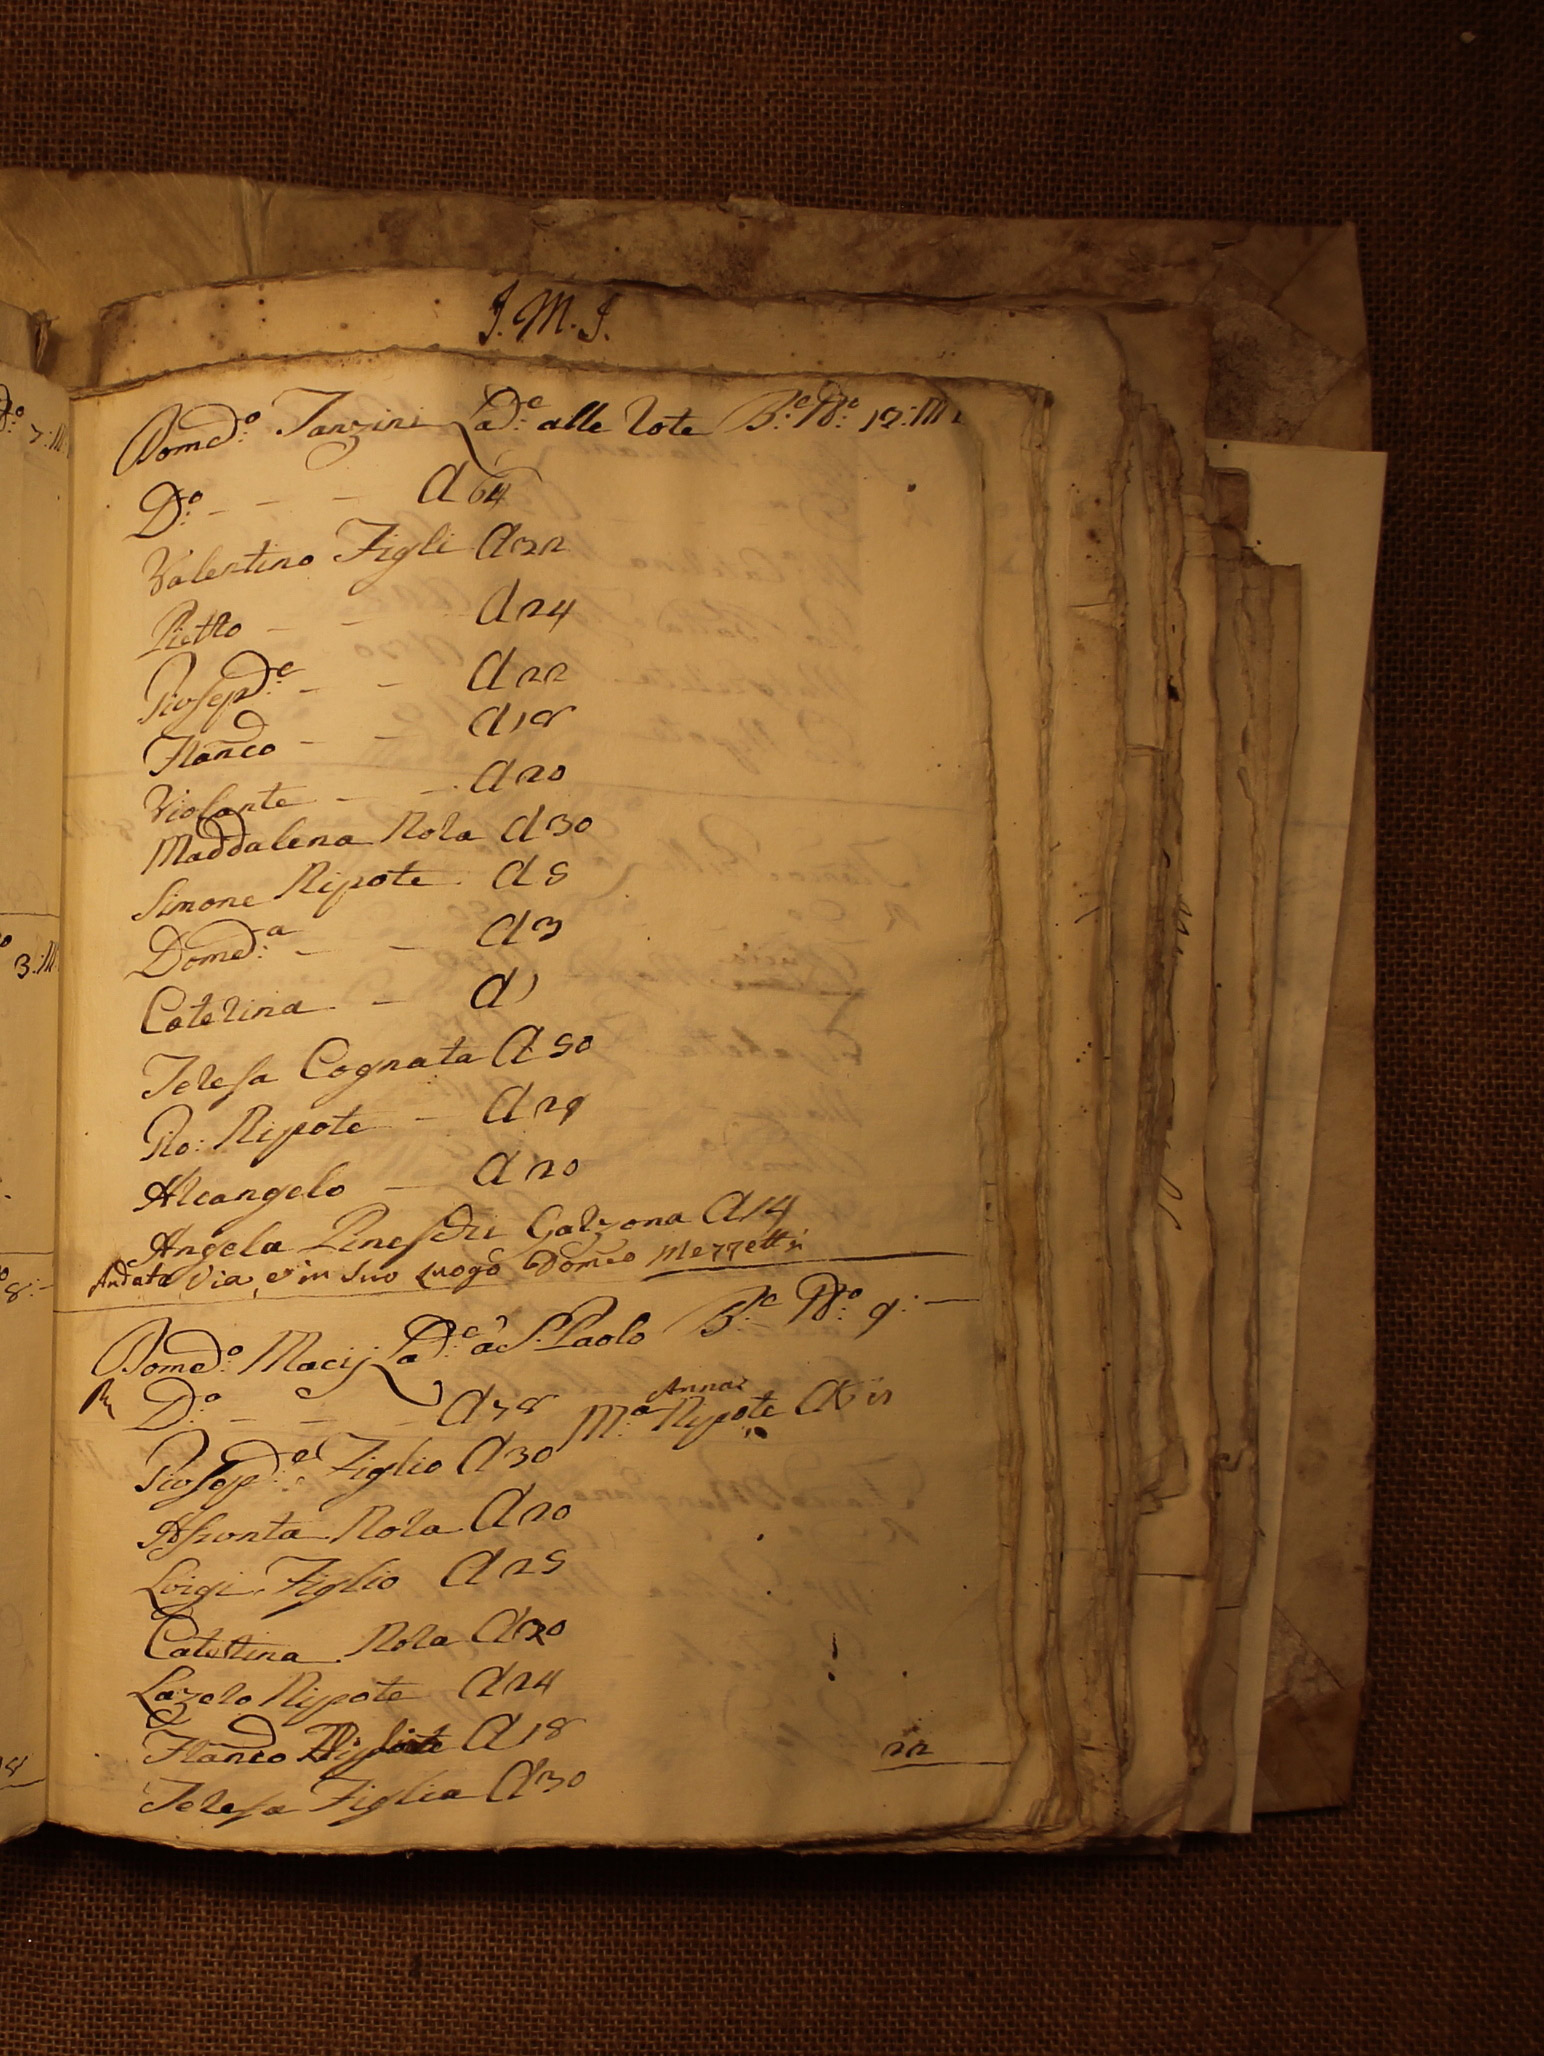 J. M. J.
Domco. Tanzini Lade. alle Rote Be. Pde. 12: M 2
Do. — — — A 64
Valentino Figli A 32
Pietro — — A 24
Giosepde. — — A 22
Franco — — A 18
Violante — — A 20
Maddalena Nora A 30
Simone Nipote A 5
Domca. — — A 3
Caterina — — A 1
Teresa Cognata A 50
Gio: Nipote — A 28
Arcangelo — A 20
Angela Garzona A 14
Andata Via, e in suo Luogo Domco Mezzetti
Domco. Macij Lade. a S. Paolo Be. Pdo. 9: —
Do. — — — A 78 Ma. Anna Nipote A
Giosepde. Figlio A 30
Assonta Nora A 20
Luigi Figlio A 25
Caterina Nora A 20
Lazero Nipote A 24
Franco A 18
Teresa Figlia A 30
22
7: M
3: M
8: —